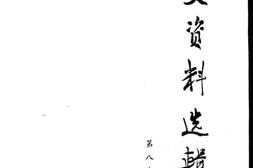 資料选輯
第八